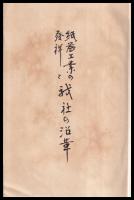 紙器工業の
発祥と
我社の沿革